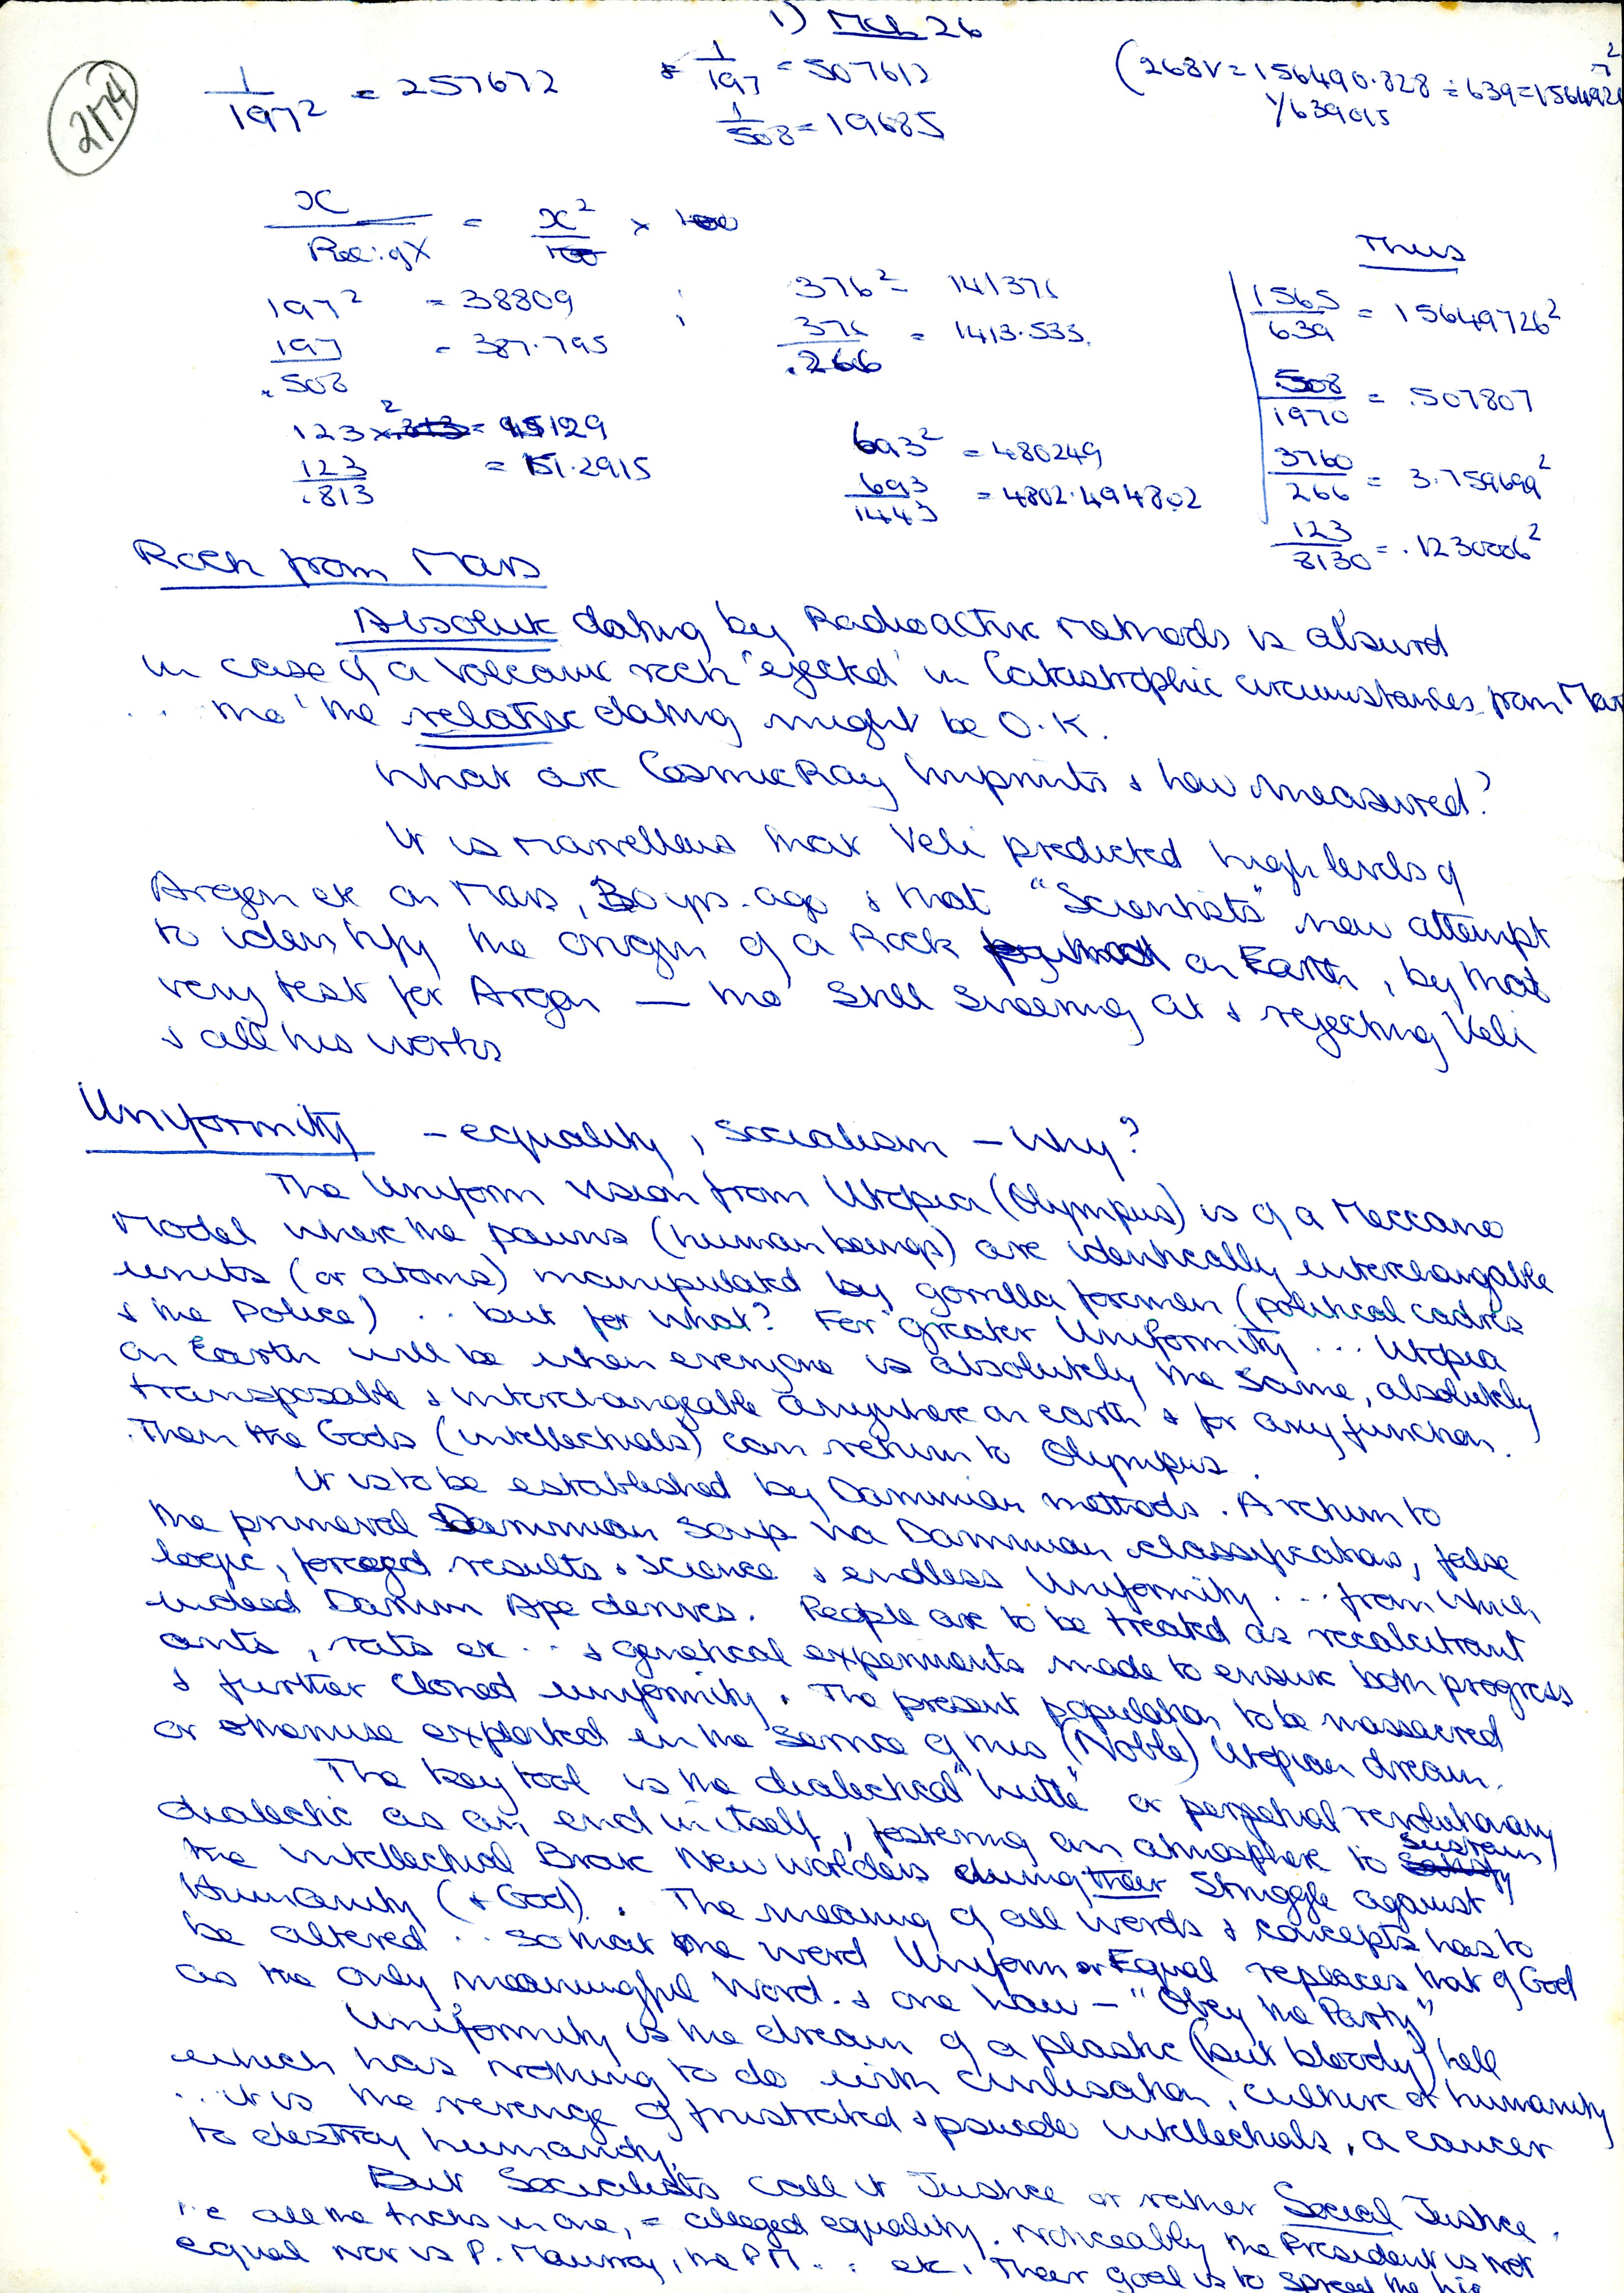 1) Mch 26
2174
1/197² = 257672
1/197 = 507613
1/508 = 19685
(268V = 156490.828 ÷ 639 =
1/639015
x / Recip: of X = x²/100 × 100
Thus
197² = 38809 ;
197/.508 = 387.795
376² = 141376
376/.266 = 1413.533.
1565/639 = 15649726²
.508/1970 = .507807
123² = 15129
123/.813 = 151.2915
693² = 480249
693/1443 = 4802.494802
3760/266 = 3.759699²
123/8130 = .1230006²
Rock from Mars
Absolute dating by Radioactive methods is absurd
in case of a Volcanic rock 'ejected' in Catastrophic circumstances from Mars
. . . tho' the relative dating might be O.K.
What are Cosmic Ray Imprints & how measured?
It is marvellous that Veli predicted high levels of
Argon etc on Mars, 30 yrs. ago & that "Scientists" now attempt
to identify the origin of a Rock on Earth, by that
very test for Argon — tho' still sneering at & rejecting Veli
& all his works
Uniformity – equality, Socialism – Why?
The Uniform vision from Utopia (Olympus) is of a Meccano
Model where the pawns (human beings) are identically interchangable
units (or atoms) manipulated by gorilla foremen (political cadres
& the Police) . . but for what? For greater Uniformity . . . Utopia
on Earth will be when everyone is absolutely the same, absolutely
transposable & interchangeable anywhere on earth & for any function.
Then the Gods (intellectuals) can return to Olympus.
It is to be established by Darwinian methods. A return to
the primeval Darwinian Soup via Darwinian classifications, false
logic, forged results & science & endless Uniformity . . . from which
indeed Darwin Ape derives. People are to be treated as recalcitrant
ants, rats etc . . & genetical experiments made to ensure both progress
& further Cloned uniformity. The present population to be massacred
or otherwise exploited in the service of this (Noble) Utopian dream.
The key tool is the dialectical or perpetual revolutionary
dialectic as an end in itself, fostering an atmosphere to sustain
the intellectual Brave New Worlders during their Struggle against
Humanity (& God). The meaning of all words & concepts has to
be altered . . so that the word Uniform or Equal replaces that of God
as the only meaningful Word. & one Law – "Obey the Party"
Uniformity is the dream of a plastic (but bloody) hell
which has nothing to do with Civilisation, culture or humanity
. . it is the revenge of frustrated & pseudo intellectuals, a cancer
to destroy humanity.
But Socialists call it Justice or rather Social Justice.
i.e all the tricks in one, = alleged equality. Noticeably the President is not
equal nor is P. Mauroy, the P.M. . : etc, Their goal is to spread the